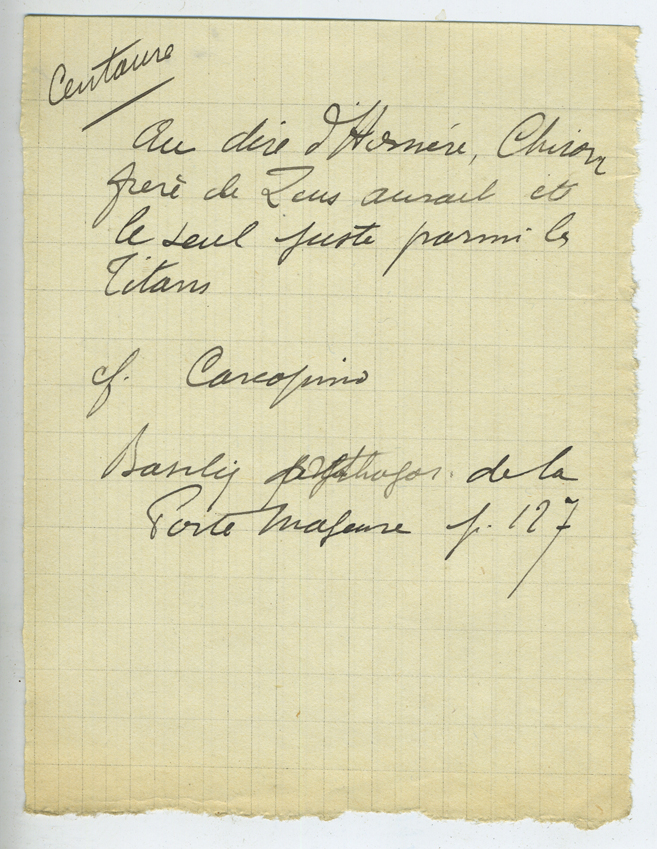 Centaure
Au dire d'Homère, Chiron
frère de Zeus aurait été
le seul juste parmi les
Titans
cf. Carcopino
Basiliq pythagor. de la
Porte Majeure p. 127